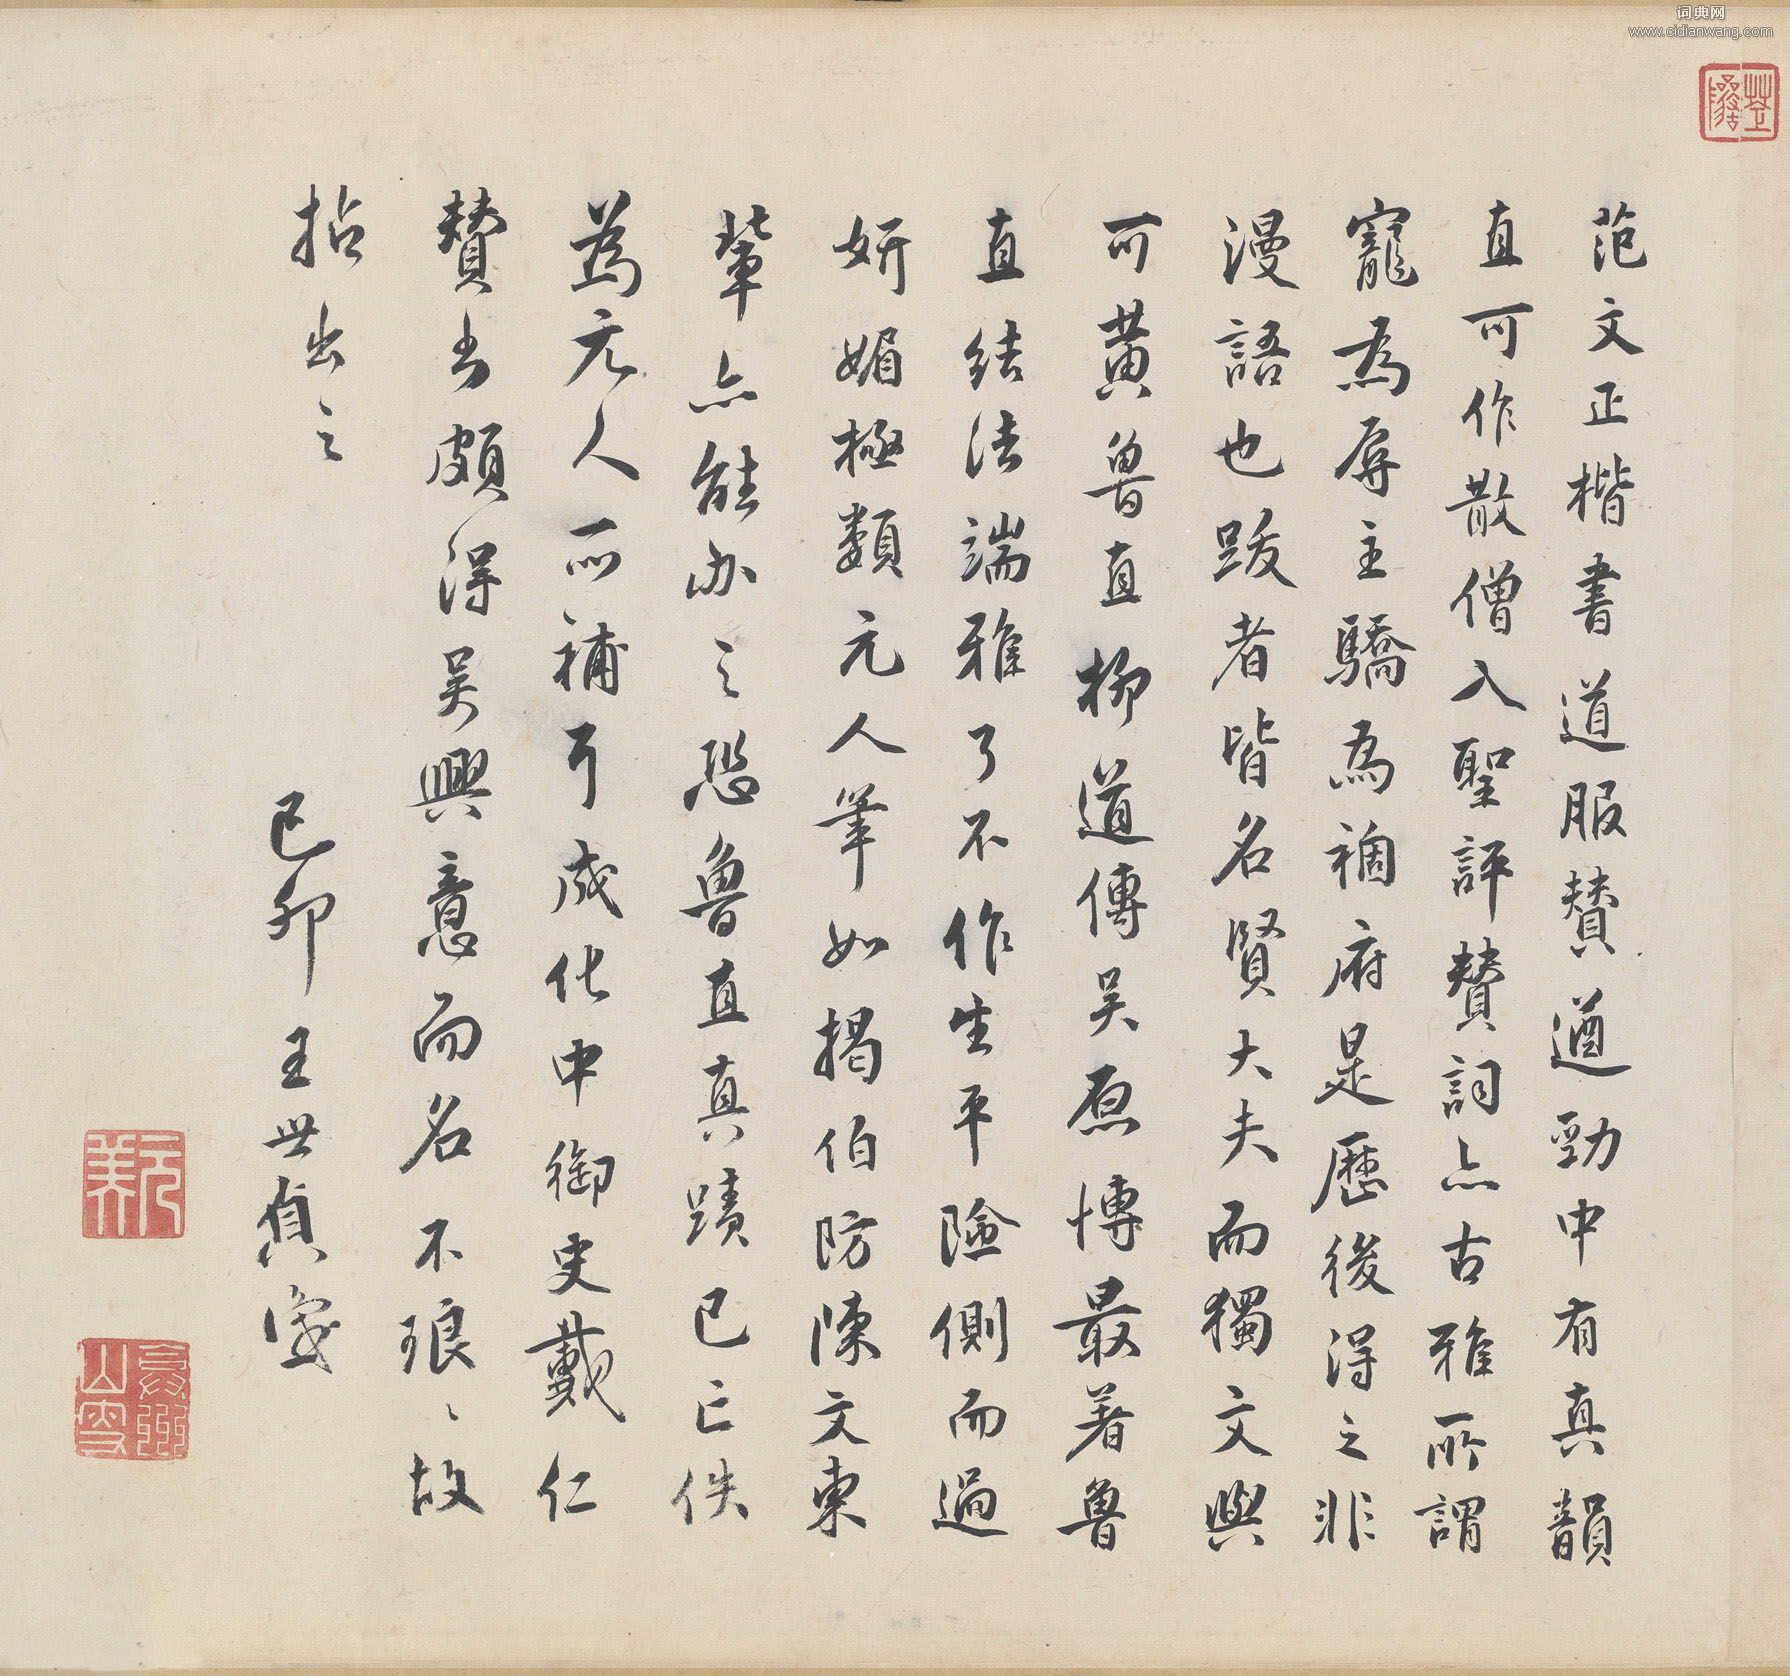 词典网
www.cidianwang.com
范文正楷書道服賛遒勁中有真韻
直可作散僧入聖評賛詞亦古雅所謂
寵為辱主驕為禍府是歷後得之非
漫語也跋者皆名賢大夫而獨文與
可黄魯直柳道傳吴原博最著魯
直結法端雅了不作生平險側而過
妍媚極類元人筆如揭伯防陳文東
輩亦能办之恐魯直真蹟已亡佚
為元人所補耳成化中御史戴仁
賛書頗得吴興意而名不琅〻故
拈出之
己卯王世貞識